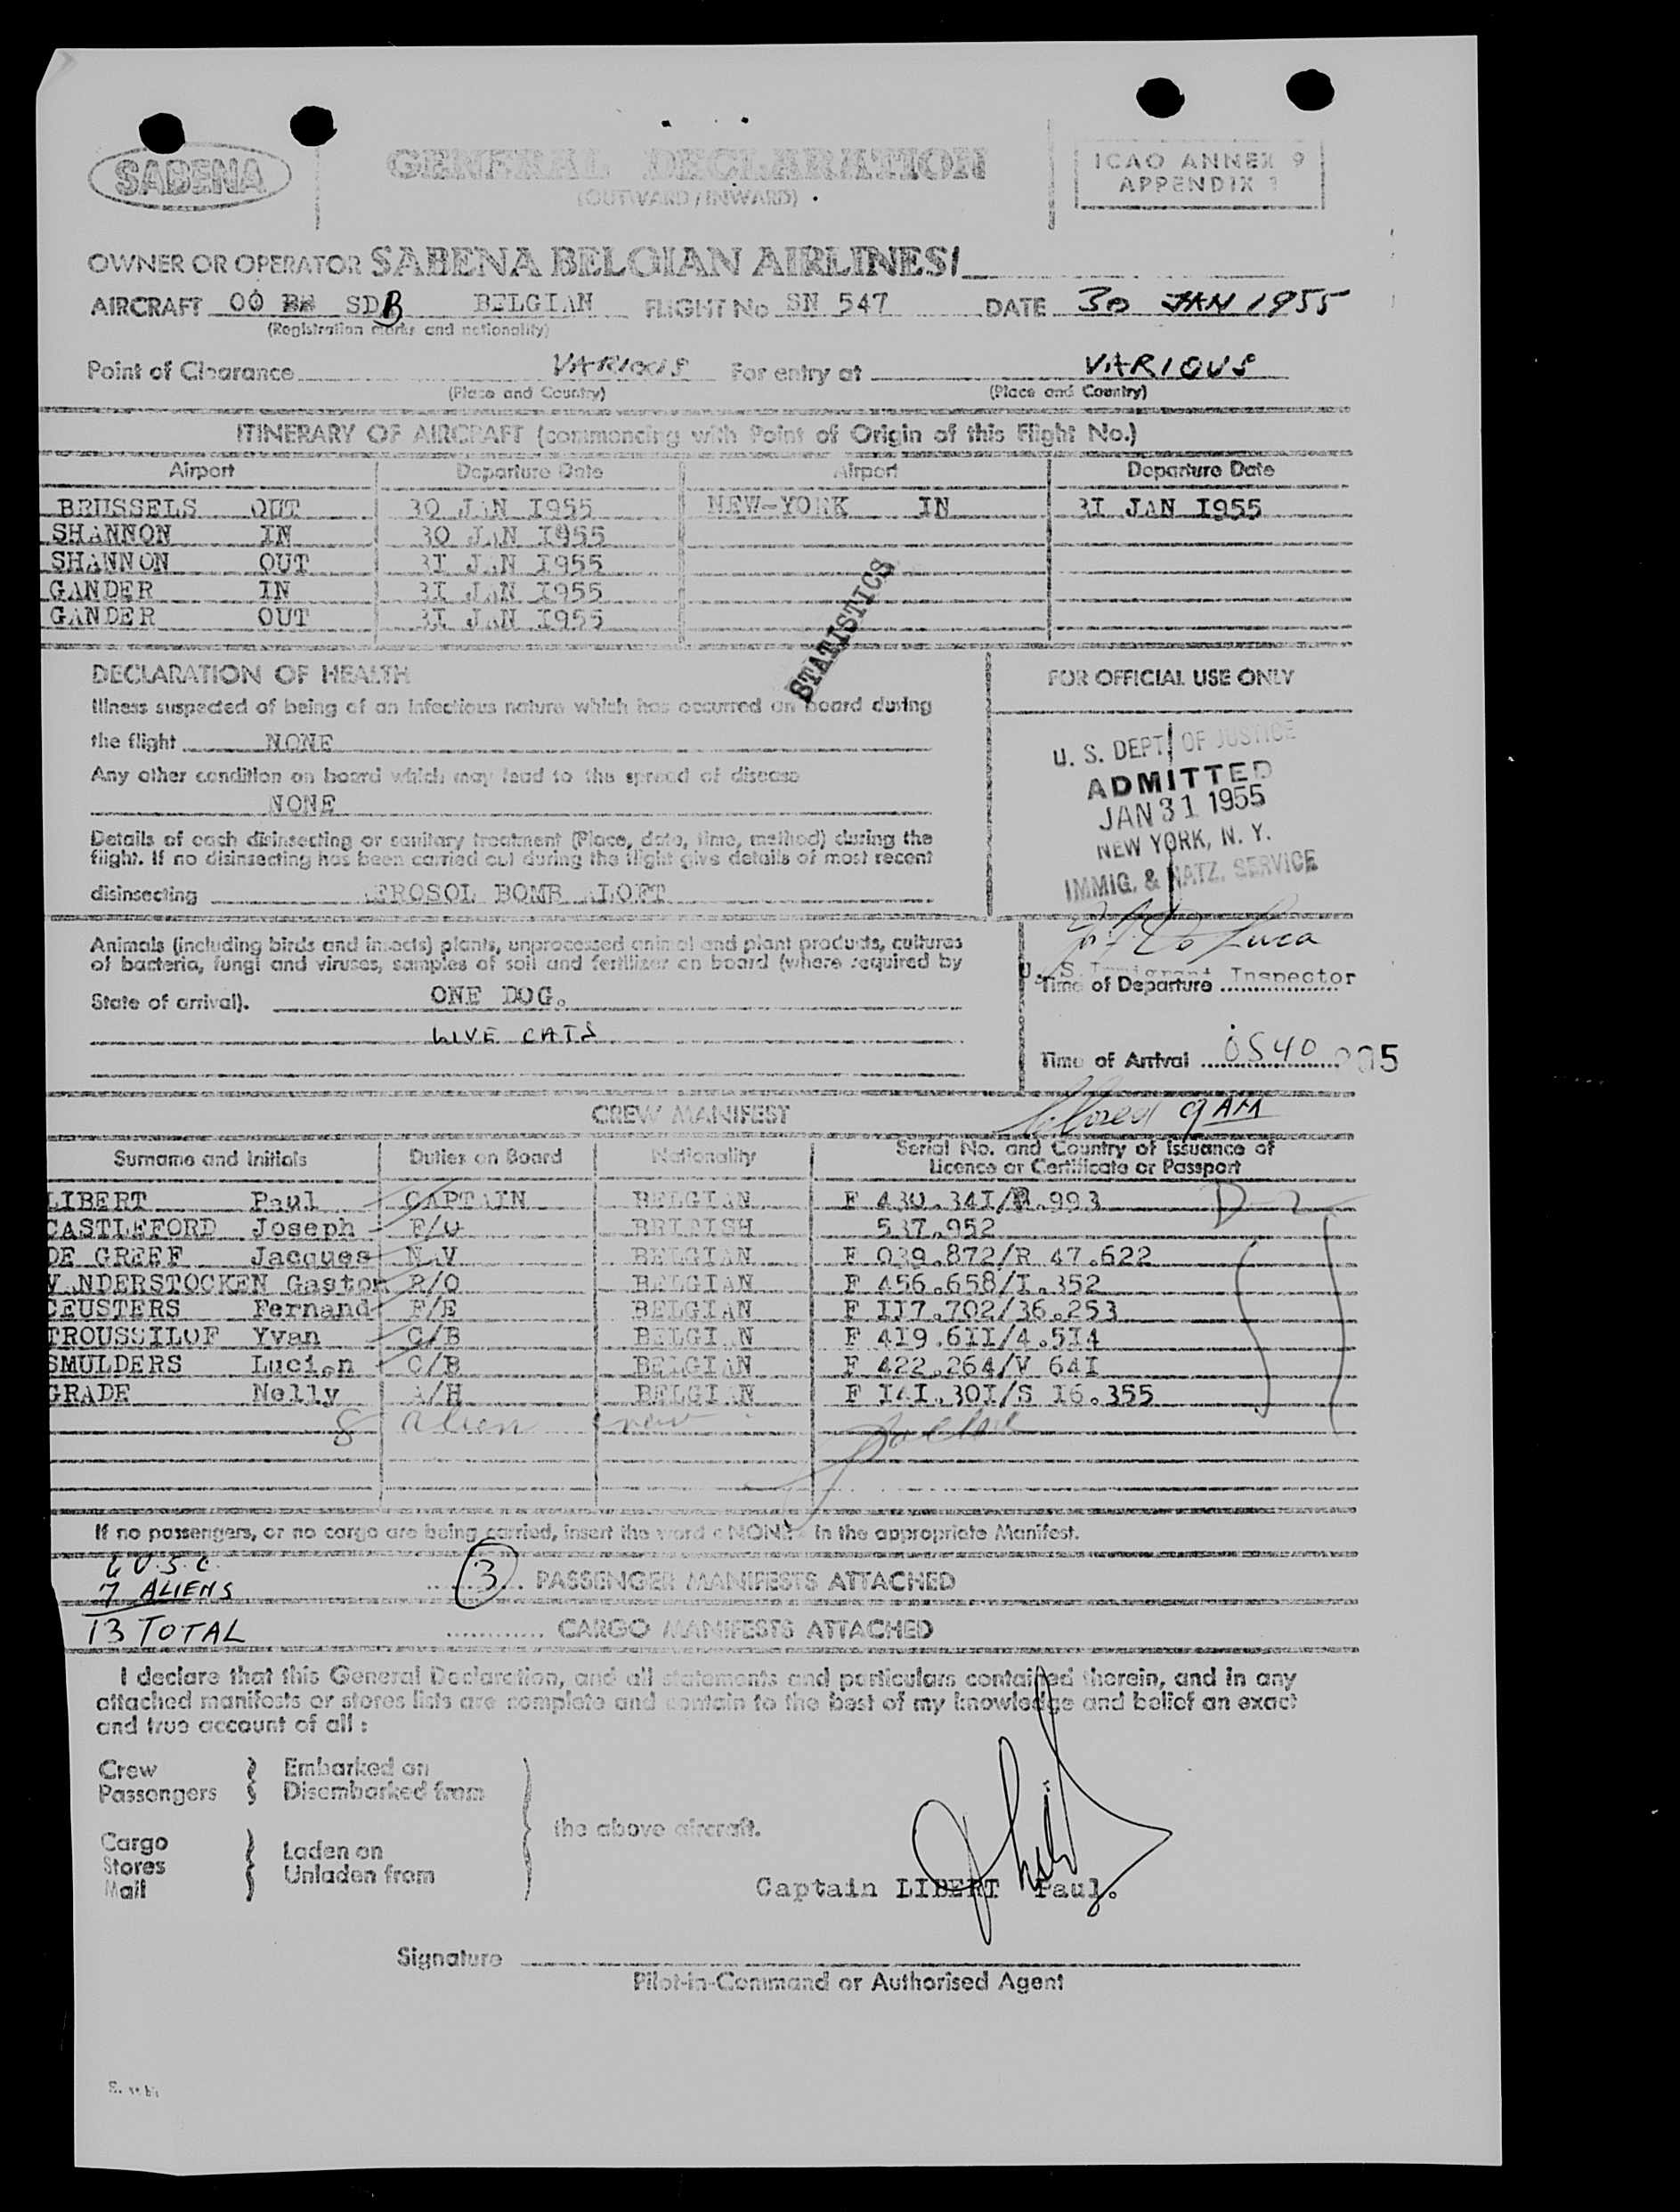 SABENA
GENERAL DECLARATION
(OUTWARD / INWARD)
ICAO ANNEX 9
APPENDIX 1
OWNER OR OPERATOR SABENA BELGIAN AIRLINES/
AIRCRAFT OO SDB BELGIAN FLIGHT No SN 547 DATE 30 JAN 1955
(Registration marks and nationality)
Point of Clearance VARIOUS For entry at VARIOUS
(Place and Country) (Place and Country)
ITINERARY OF AIRCRAFT (commencing with Point of Origin of this Flight No.)
Airport Departure Date Airport Departure Date
BRUSSELS OUT 30 JAN I955 NEW-YORK IN 3I JAN I955
SHANNON IN 30 JAN I955
SHANNON OUT 3I JAN I955
GANDER IN 3I JAN I955
GANDER OUT 3I JAN I955
STATISTICS
DECLARATION OF HEALTH
Illness suspected of being of an infectious nature which has occurred on board during
the flight NONE
Any other condition on board which may lead to the spread of disease
NONE
Details of each disinsecting or sanitary treatment (Place, date, time, method) during the
flight. If no disinsecting has been carried out during the flight give details of most recent
disinsecting AEROSOL BOMB ALOFT
FOR OFFICIAL USE ONLY
U. S. DEPT. OF JUSTICE
ADMITTED
JAN 31 1955
NEW YORK, N. Y.
IMMIG. & NATZ. SERVICE
De Luca
U. S. Immigrant Inspector
Animals (including birds and insects) plants, unprocessed animal and plant products, cultures
of bacteria, fungi and viruses, samples of soil and fertilizer on board (where required by
State of arrival). ONE DOG.
LIVE CATS
Time of Departure
Time of Arrival 0540
5
Closed 9 AM
CREW MANIFEST
Surname and Initials Duties on Board Nationality Serial No. and Country of issuance of
Licence or Certificate or Passport
LIBERT Paul CAPTAIN BELGIAN F 430.34I/ .993 D-2
CASTLEFORD Joseph F/O BRITISH 537.952
DE GREEF Jacques NAV BELGIAN F 039.872/R 47.622
VANDERSTOCKEN Gaston R/O BELGIAN F 456.658/I.352
CEUSTERS Fernand F/E BELGIAN F II7.702/36.253
TROUSSILOF Yvan C/B BELGIAN F 4I9.6II/4.5I4
SMULDERS Lucien C/B BELGIAN F 422.264/V 64I
GRADE Nelly A/H BELGIAN F I4I.30I/S I6.355
8 alien
If no passengers, or no cargo are being carried, insert the word « NONE » in the appropriate Manifest.
6 U.S.C.
7 ALIENS
13 TOTAL
3 PASSENGER MANIFESTS ATTACHED
CARGO MANIFESTS ATTACHED
I declare that this General Declaration, and all statements and particulars contained therein, and in any
attached manifests or stores lists are complete and contain to the best of my knowledge and belief an exact
and true account of all :
Crew Embarked on
Passengers Disembarked from
the above aircraft.
Cargo Laden on
Stores Unladen from
Mail
Captain LIBERT Paul.
Signature
Pilot-in-Command or Authorised Agent